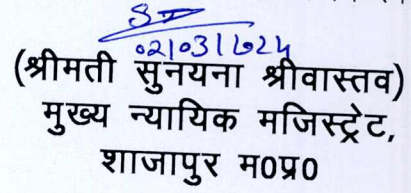 (श्रीमती सुनयना श्रीवास्तव)
मुख्य न्यायिक मजिस्ट्रेट,
शाजापुर म0प्र0